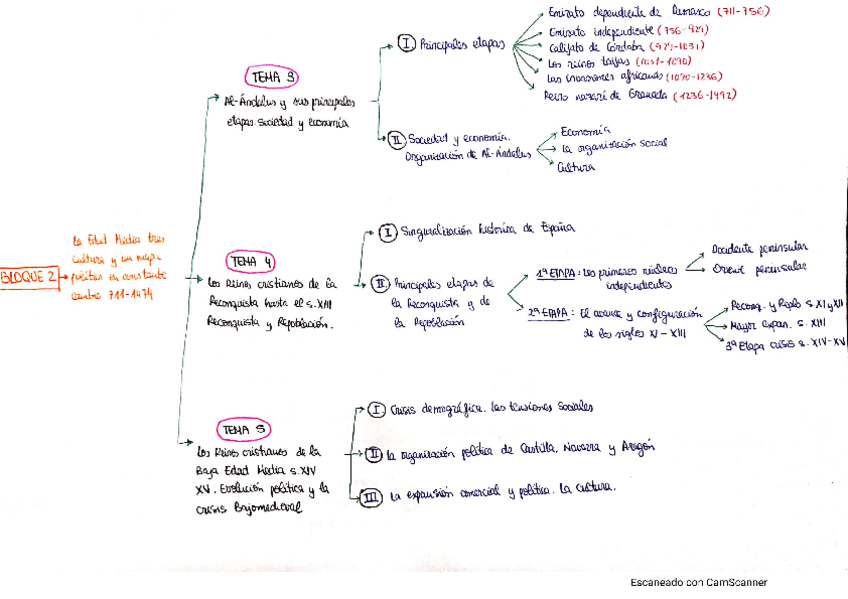 BLOQUE 2
La Edad Media tres
cultura y un mapa
político en constante
cambio 711-1474
TEMA 3
Al-Ándalus y sus principales
etapas. Sociedad y economía
I Principales etapas
Emirato dependiente de Damasco (711-756)
Emirato independiente (756-929)
Califato de Córdoba (929-1031)
Los reinos taifas (1031-1090)
Las invasiones africanas (1090-1236)
Reino nazarí de Granada (1236-1492)
II Sociedad y economía.
Organización de Al-Ándalus
Economía
La organización social
Cultura
TEMA 4
Los Reinos cristianos de la
Reconquista hasta el s. XIII
Reconquista y Repoblación.
I Singuralización histórica de España
II Principales etapas de
la Reconquista y de
la Repoblación
1ª ETAPA: Los primeros núcleos
independientes
Occidente peninsular
Oriente peninsular
2ª ETAPA: El avance y configuración
de los siglos XI-XIII
Reconq. y Repob s. XI y XII
Mayor expan. s. XIII
3ª Etapa crisis s. XIV-XV
TEMA 5
Los Reinos cristianos de la
Baja Edad Media s. XIV
XV. Evolución política y la
crisis Bajomedieval
I Crisis demográfica. Las tensiones sociales
II La organización política de Castilla, Navarra y Aragón
III La expansión comercial y política. La cultura.
Escaneado con CamScanner